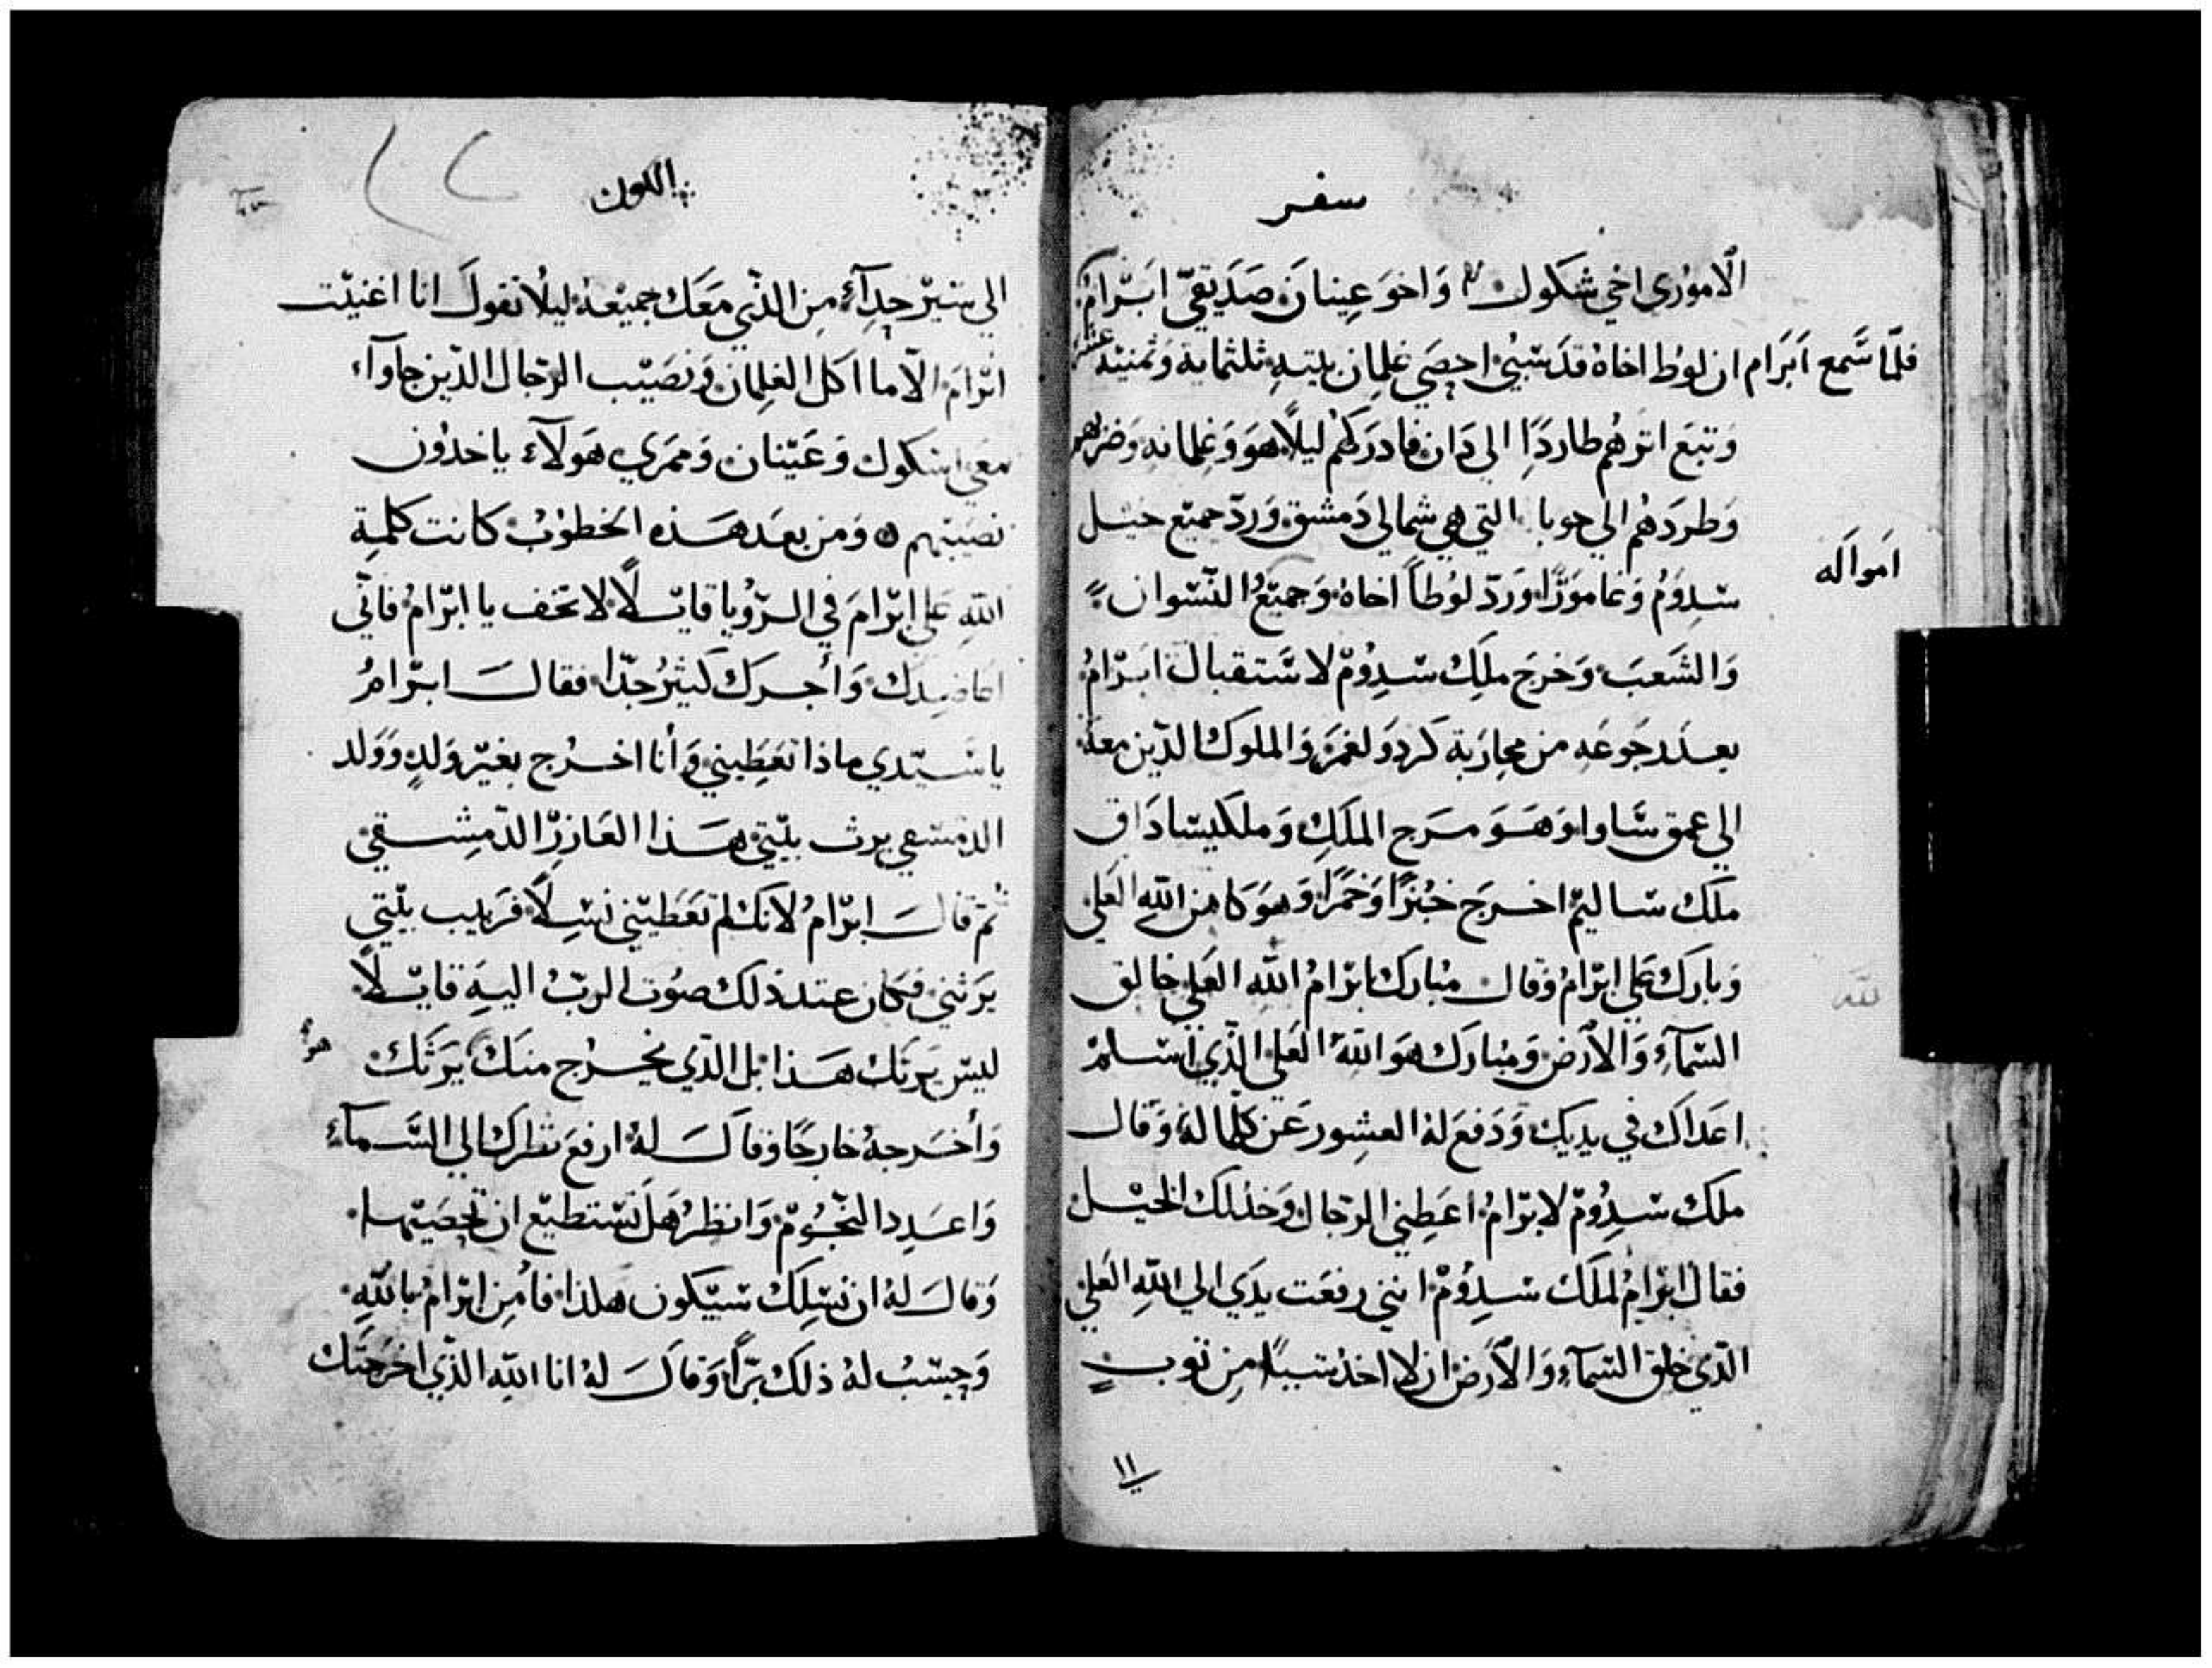 سفر
الاموري اخي شكول واخو عينان صديقي ابرام
فلما سمع ابرام ان لوط اخاه قد سبي احصي غلمان بيته ثلثماية وثمنية عشر
وتبع اثرهم طاردا الي دان فادركهم ليلا هو وغلمانه وضربهم
وطردهم الي حوبا التي هي شمالي دمشق ورد جميع خيل
سدوم وغامورا ورد لوطا اخاه وجميع النسوان
امواله
والشعب وخرج ملك سدوم لاستقبال ابرام
بعد رجوعه من محاربة كردولغمر والملوك الذين معه
الي عمق ساوا وهو مرج الملك وملكيساداق
ملك ساليم اخرج خبزا وخمرا وهو كاهن الله العلي
وبارك علي ابرام وقال مبارك ابرام الله العلي خالق
لله
السماء والارض ومبارك هو الله العلي الذي اسلم
اعداك في يديك ودفع له العشور عن كلما له وقال
ملك سدوم لابرام اعطني الرجال وخذ لك الخيل
فقال ابرام لملك سدوم انني رفعت يدي الي الله العلي
الذي خلق السماء والارض ان لا اخذ شيا من ثوب
١١
التكوين
الي سير حداء من الذي معك جميعه ليلا تقول انا اغنيت
ابرام الا ما اكل الغلمان ونصيب الرجال الذين جاوآ
معي اشكول وعينان وممري هولاء ياخذون
نصيبهم ومن بعد هذه الخطوب كانت كلمة
الله علي ابرام في الرؤيا قايلا لا تخف يا ابرام فاني
اعاضدك وأجرك كثير جدا فقال ابرام
يا سيدي ماذا تعطيني وأنا اخرج بغير ولد وولد
الدمشقي يرث بيتي هذا العازر الدمشقي
ثم قال ابرام لانك لم تعطيني نسلا فربيب بيتي
يرثني فكان عند ذلك صوت الرب اليه قايلا
ليس يرثك هذا بل الذي يخرج منك يرثك
هو
وأخرجه خارجا وقال له ارفع نظرك الي السماء
واعدد النجوم وانظر هل تستطيع ان تحصيها
وقال له ان نسلك سيكون هكذا فأمن ابرام بالله
وحسب له ذلك برا وقال له انا الله الذي اخرجتك